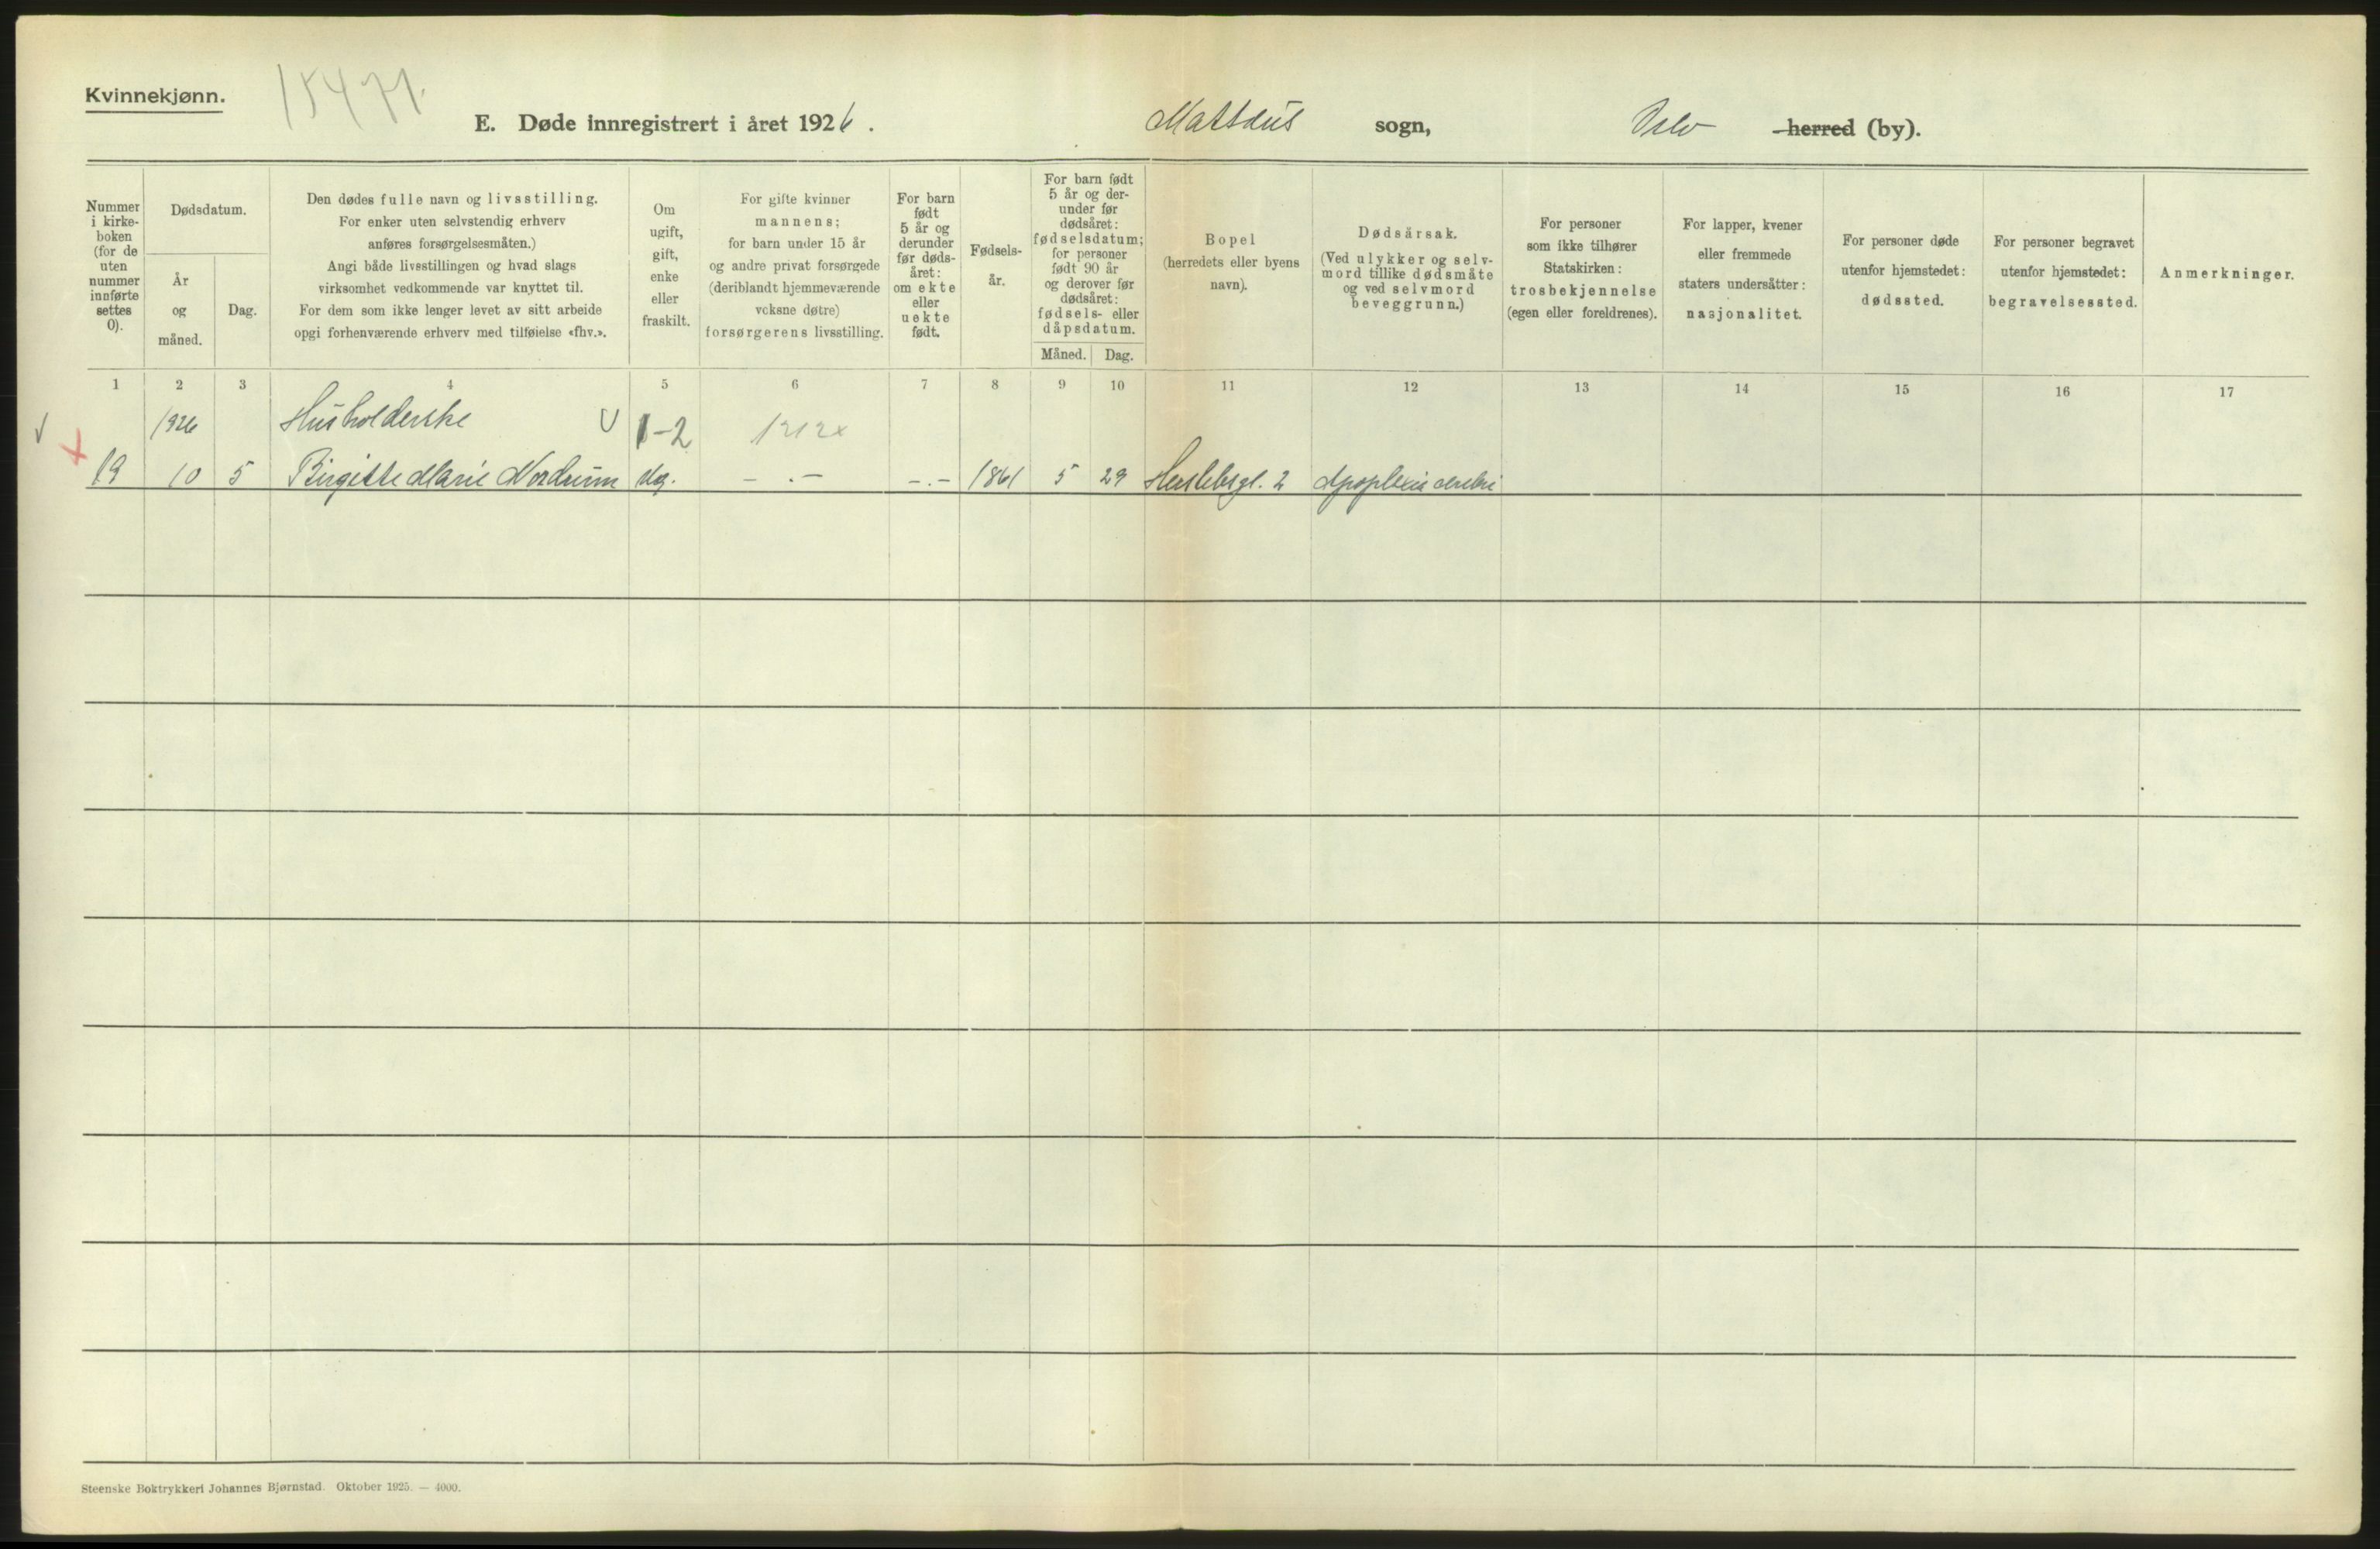 Kvinnekjønn.
15471.
E. Døde innregistrert i året 1926. Mattæus sogn, Oslo herred (by).
Nummer i kirke- boken (for de uten nummer innførte settes 0).
Dødsdatum.
År og måned.
Dag.
Den dødes fulle navn og livsstilling.
For enker uten selvstendig erhverv
anføres forsørgelsesmåten.)
Angi både livsstillingen og hvad slags
virksomhet vedkommende var knyttet til.
For dem som ikke lenger levet av sitt arbeide
opgi forhenværende erhverv med tilføielse «fhv.».
Om
ugift,
gift,
enke
eller
fraskilt.
For gifte kvinner
mannens;
for barn under 15 år
og andre privat forsørgede
(deriblandt hjemmeværende
voksne døtre)
forsørgerens livsstilling.
For barn
født
5 år og
derunder
før døds-
året:
om ekte
eller
uekte
født.
Fødsels-
år.
For barn født
5 år og der-
under før
dødsåret:
fødselsdatum;
for personer
født 90 år
og derover før
dødsåret:
fødsels- eller
dåpsdatum.
Måned. Dag.
Bopel
(herredets eller byens
navn).
Dødsårsak.
(Ved ulykker og selv-
mord tillike dødsmåte
og ved selvmord
beveggrunn.)
For personer
som ikke tilhører
Statskirken:
trosbekjennelse
(egen eller foreldrenes).
For lapper, kvener
eller fremmede
staters undersåtter:
nasjonalitet.
For personer døde
utenfor hjemstedet:
dødssted.
For personer begravet
utenfor hjemstedet:
begravelsessted.
Anmerkninger.
1 2 3 4 5 6 7 8 9 10 11 12 13 14 15 16 17
1926 Husholderske U 1-2
19 10 5 Birgitte Marie Nordrum ug. - . - - . - 1861 5 29 Herslebsgt. 2 Apoplexia cerebri
Steenske Boktrykkeri Johannes Bjørnstad. Oktober 1925. — 4000.